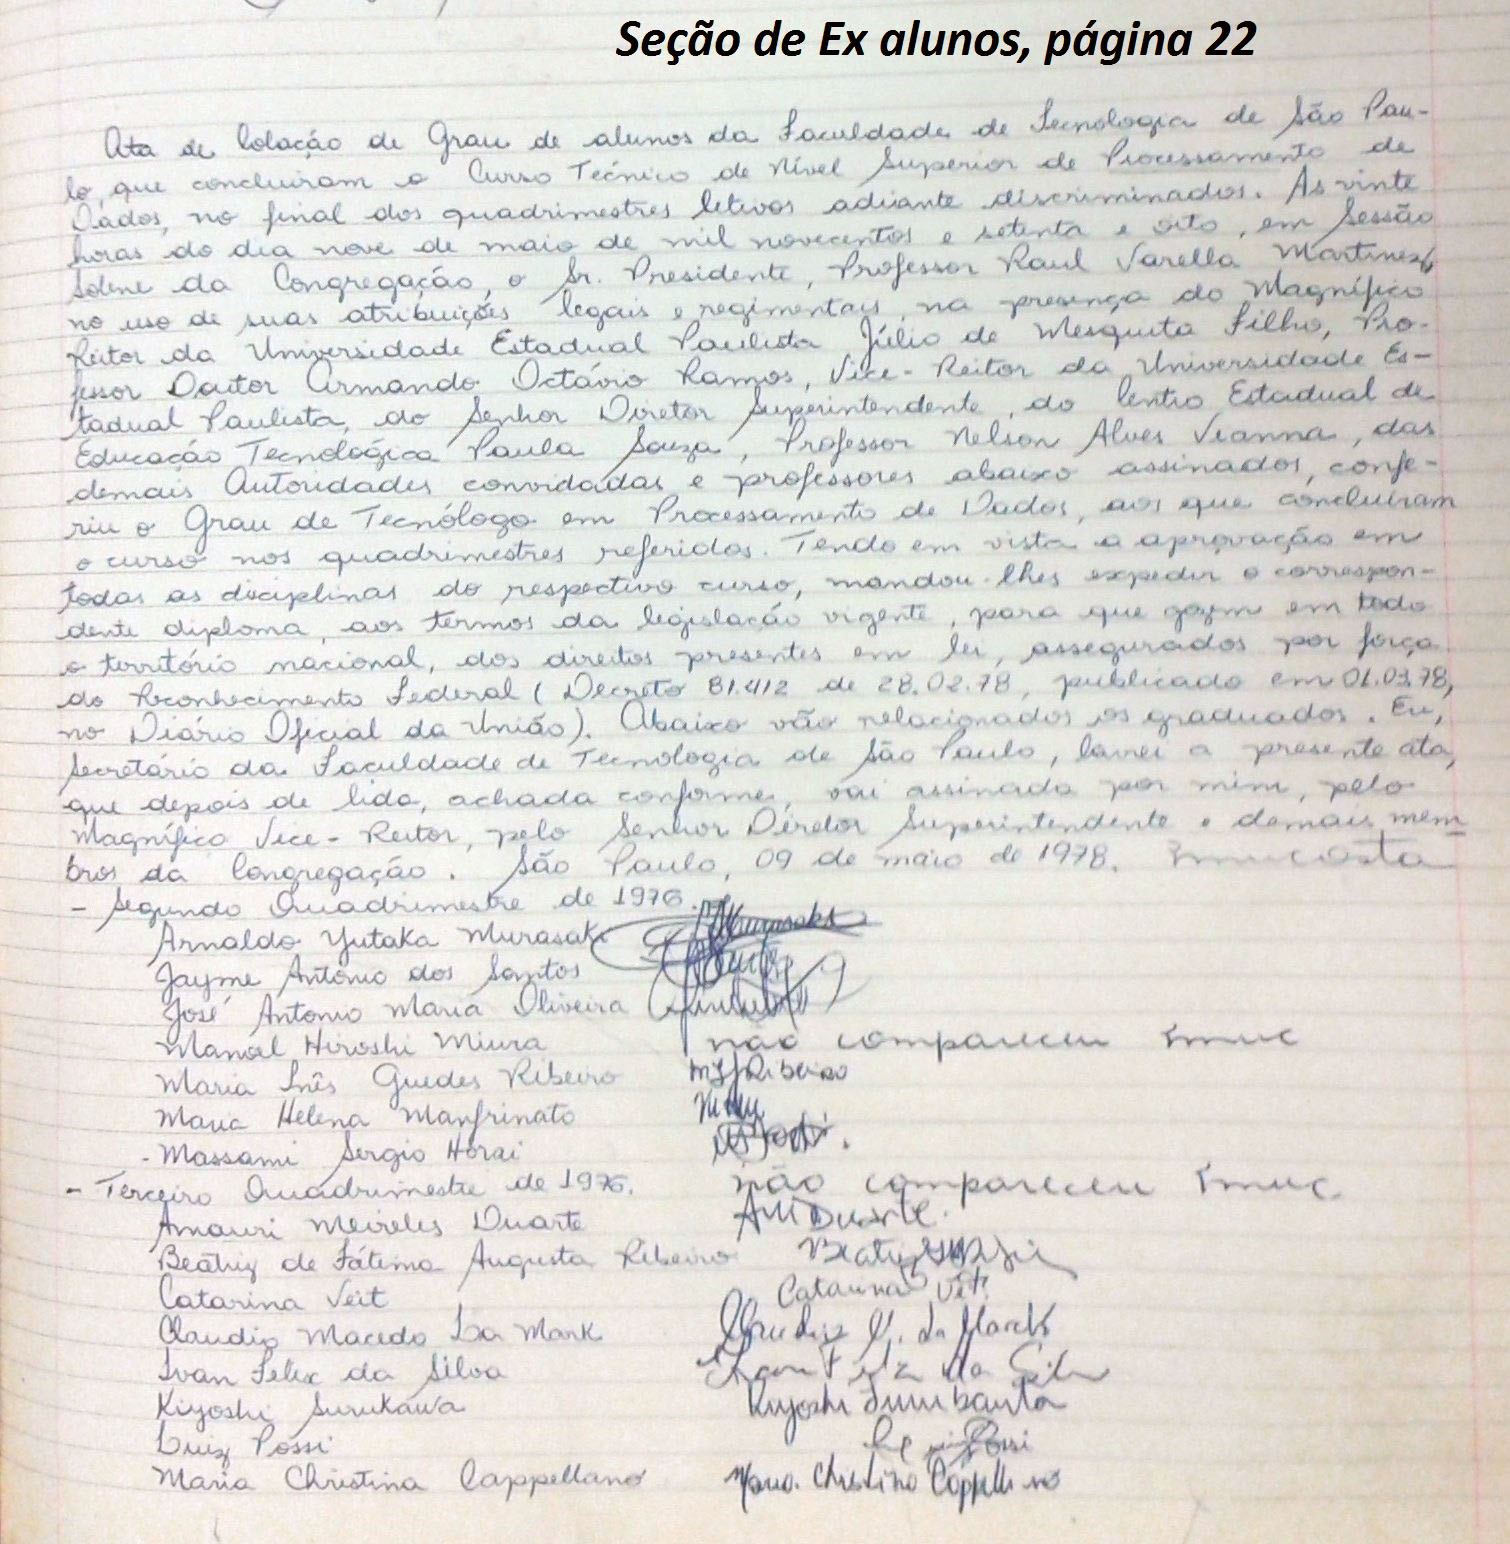 Seção de Ex alunos, página 22
Ata de Colação de Grau de alunos da Faculdade de Tecnologia de São Pau-
lo, que concluiram o Curso Técnico de Nível Superior de Processamento de
Dados, no final dos quadrimestres letivos adiante discriminados. As vinte
horas do dia nove de maio de mil novecentos e setenta e oito, em Sessão
Solene da Congregação, o Sr. Presidente, Professor Raul Varella Martinez,
no uso de suas atribuições legais e regimentais, na presença do Magnífico
Reitor da Universidade Estadual Paulista Júlio de Mesquita Filho, Pro-
fessor Doutor Armando Octávio Ramos, Vice-Reitor da Universidade Es-
tadual Paulista, do Senhor Diretor Superintendente, do Centro Estadual de
Educação Tecnológica Paula Souza, Professor Nelson Alves Vianna, das
demais Autoridades convidadas e professores abaixo assinados, confe-
riu o Grau de Tecnólogo em Processamento de Dados, aos que concluiram
o curso nos quadrimestres referidos. Tendo em vista a aprovação em
todas as disciplinas do respectivo curso, mandou-lhes expedir o correspon-
dente diploma, aos termos da legislação vigente, para que gozem em todo
o território nacional, dos direitos presentes em lei, assegurados por força
do Reconhecimento Federal (Decreto 81.412 de 28.02.78, publicado em 01.03.78,
no Diário Oficial da União). Abaixo vão relacionados os graduados. Eu,
Secretário da Faculdade de Tecnologia de São Paulo, lavrei a presente ata,
que depois de lida, achada conforme, vai assinada por mim, pelo
Magnífico Vice-Reitor, pelo Senhor Diretor Superintendente e demais mem
bros da Congregação. São Paulo, 09 de maio de 1978.
- Segundo Quadrimestre de 1976.
Arnaldo Yutaka Murasaki
Jayme Antonio dos Santos
José Antonio Maria Oliveira
Manoel Hiroshi Miura não compareceu
Maria Inês Guedes Ribeiro MIGRibeiro
Maria Helena Manfrinato
- Massami Sergio Horai
- Terceiro Quadrimestre de 1976. não compareceu
Amauri Meireles Duarte AMDuarte.
Beatriz de Fátima Augusta Ribeiro
Catarina Veit Catarina Veit
Claudio Macedo La Mark
Ivan Felix da Silva Ivan Felix da Silva
Kiyoshi Surukawa Kiyoshi
Luiz Possi Possi
Maria Christina Cappellano Maria Christina Cappellano